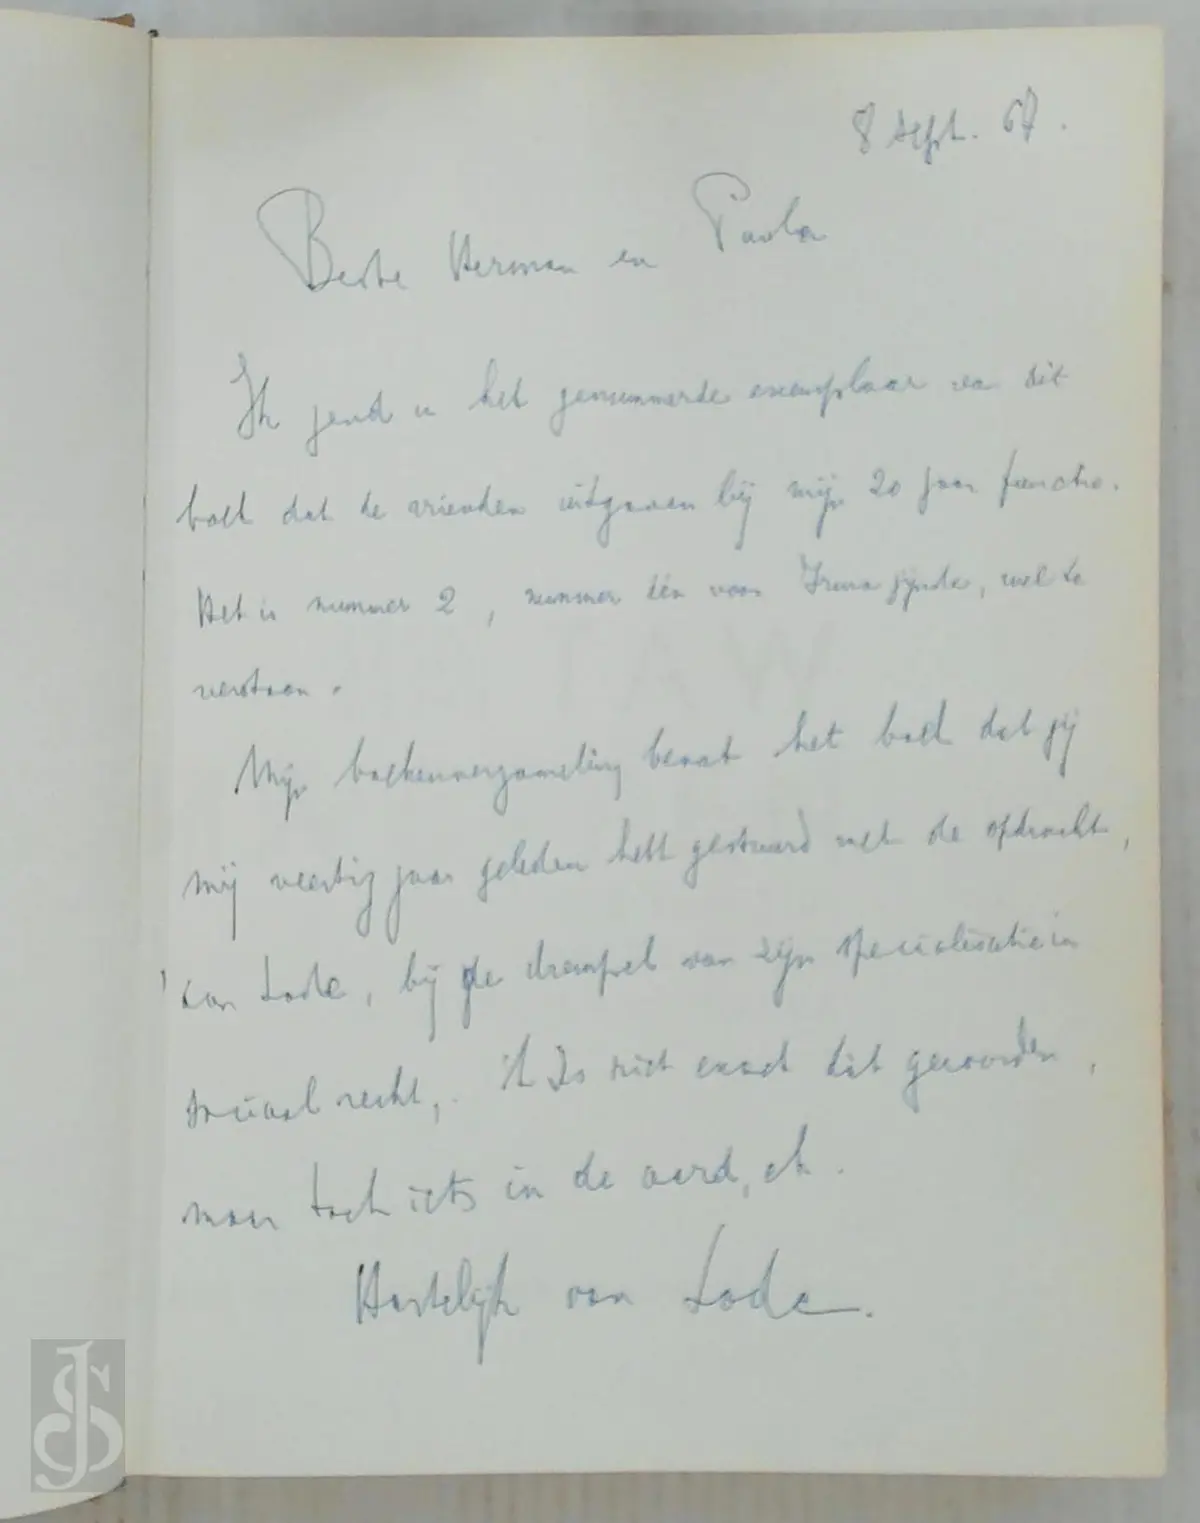 8 sept. 67.
Beste Herman en Paula
Ik zend u het genummerde exemplaar van dit
boek dat de vrienden uitgaven bij mijn 20 jaar functie.
Het is nummer 2, nummer één voor Irma zijnde, wel te
verstaan.
Mijn boekenverzameling bevat het boek dat gij
mij veertig jaar geleden hebt gestuurd met de opdracht,
'aan Lode, bij de drempel van zijn specialisatie in
sociaal recht,. 't Is niet exact dat geworden,
maar toch iets in de aard, eh.
Hartelijk van Lode.
JS